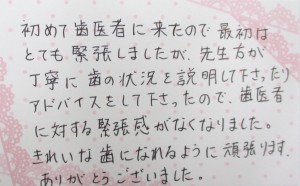 初めて歯医者に来たので最初は
とても緊張しましたが、先生方が
丁寧に歯の状況を説明して下さったり
アドバイスをして下さったので、歯医者
に対する緊張感がなくなりました。
きれいな歯になれるように頑張ります。
ありがとうございました。